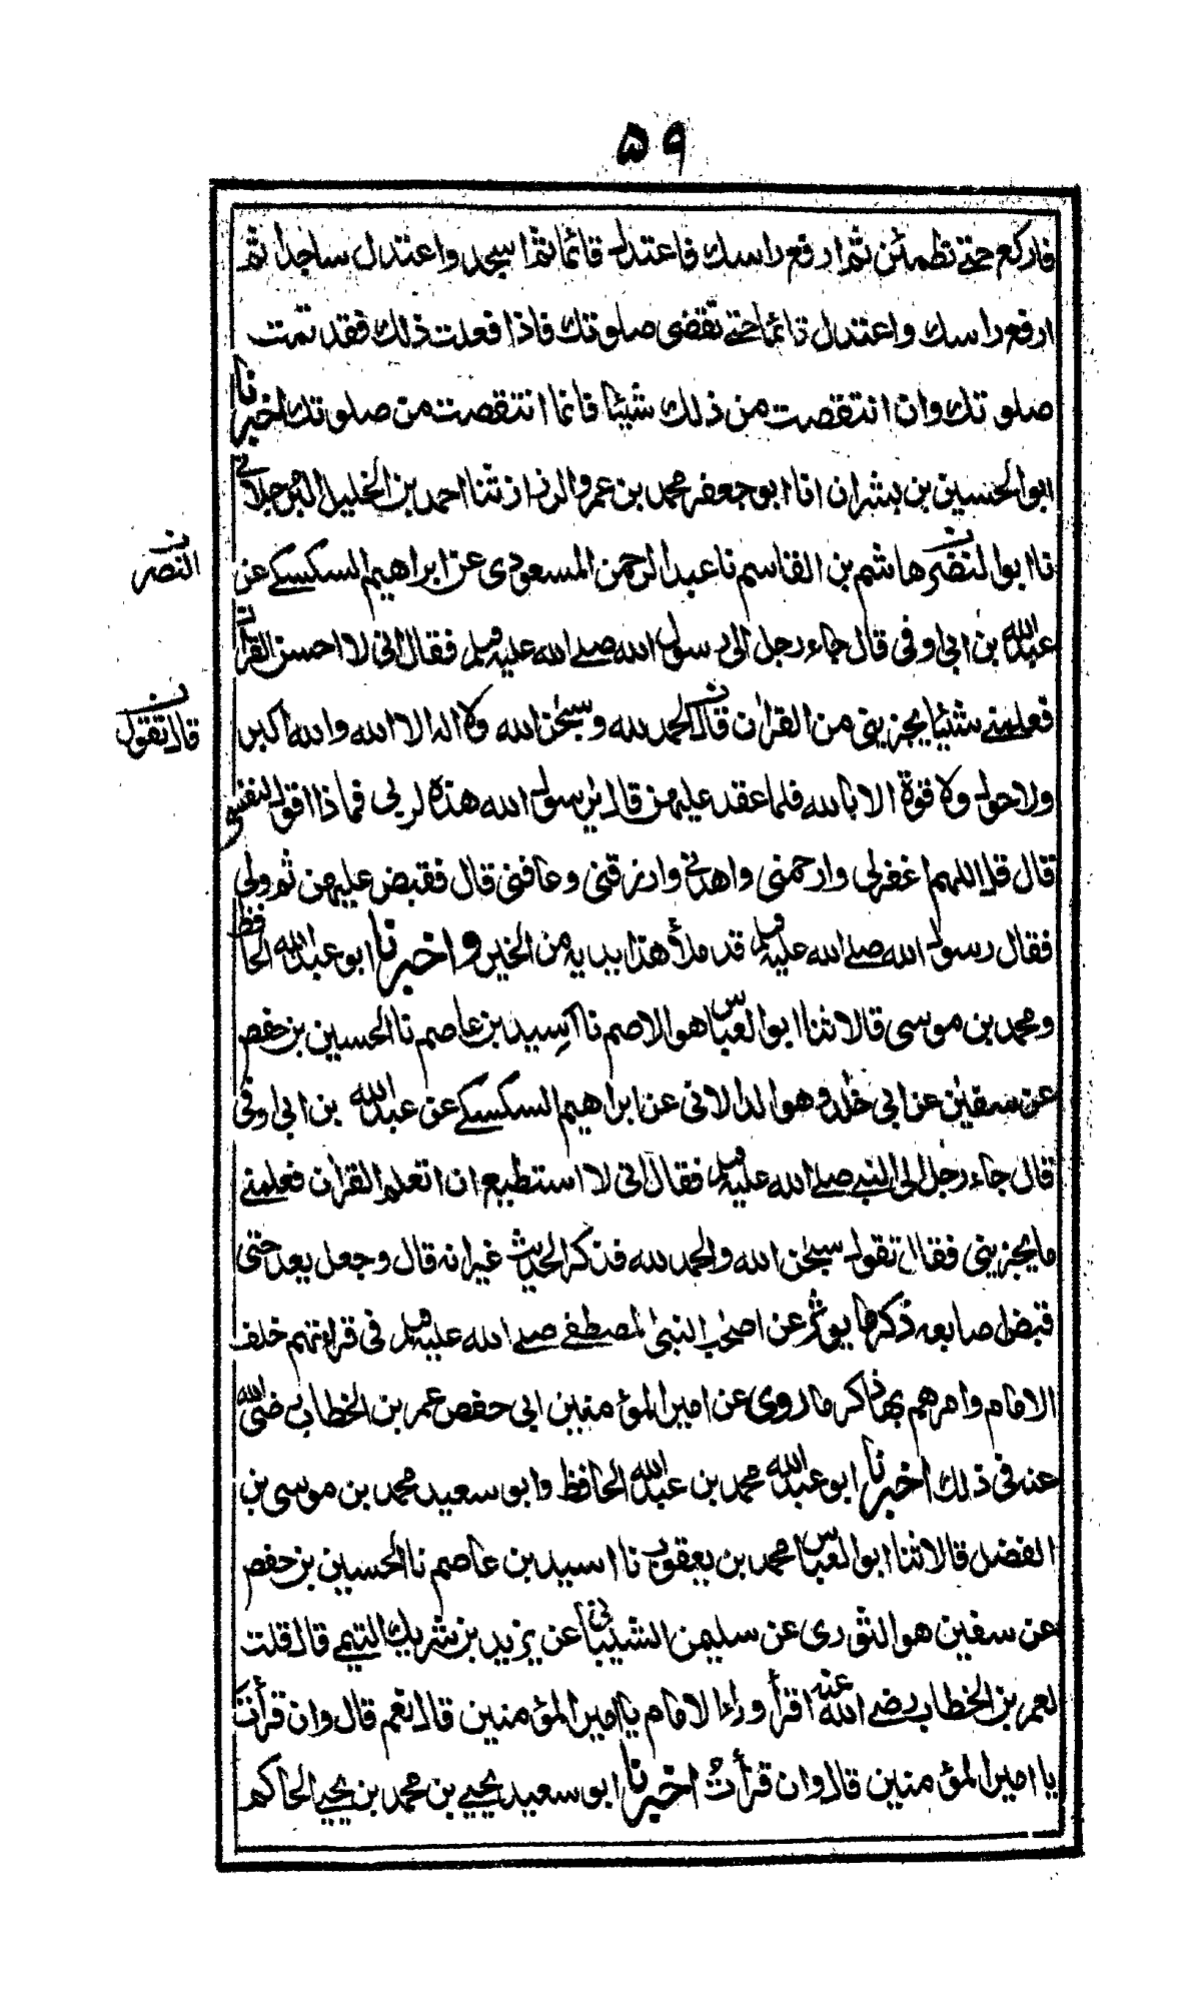 ۵۹
فاركع حتے تطمئن ثم ارفع راسك فاعتدل قائما ثم اسجد واعتدل ساجدا ثم
ارفع راسك واعتدل قائما حتے تقضی صلوتك فاذا فعلت ذلك فقد تمت
صلوتك وان انتقصت من ذلك شيئا فانما انتقصت من صلوتك اخبرنا
ابو الحسين بن بشران انا ابو جعفر محمد بن عمرو الرزاز ثنا احمد بن الخليل البرجلانی
نا ابو النضر هاشم بن القاسم نا عبد الرحمن المسعودی عن ابراهيم السكسكے عن
النصر
عبد الله بن ابی اوفی قال جاء رجل الی رسول الله صلے الله عليه وسلم فقال انی لا احسن القرآن
فعلمنے شيئا يجزينی من القرآن قال الحمد لله وسبحن الله ولا اله الا الله والله اكبر
قال تقول
ولا حول ولا قوة الا بالله فلما عقد عليهن قال يا رسول الله هذه لربی فماذا اقول لنفسی
قال قل اللهم اغفر لی وارحمنی واهدنی وارزقنی وعافنی قال فقبض عليهن ثم ولی
فقال رسول الله صلے الله عليه وسلم قد ملأ هذا يديه من الخير واخبرنا ابو عبد الله الحافظ
ومحمد بن موسی قالا ثنا ابو العباس هو الاصم نا اسيد بن عاصم نا الحسين بن حفص
عن سفين عن ابی خلد وهو الدالانی عن ابراهيم السكسكے عن عبد الله بن ابی اوفی
قال جاء رجل الی النبے صلے الله عليه وسلم فقال انی لا استطيع ان اتعلم القرآن فعلمنے
ما يجزينی فقال تقول سبحن الله والحمد لله فذكر الحديث غير انه قال وجعل يعد حتی
قبض اصابعه ذكر ما يوثر عن اصحٰب النبی المصطفے صلے الله عليه وسلم فی قراءتهم خلف
الامام وامرهم بها ذاكر ما روی عن امير المؤمنين ابی حفص عمر بن الخطاب رضی الله
عنه فی ذلك اخبرنا ابو عبد الله محمد بن عبد الله الحافظ وابو سعيد محمد بن موسی بن
الفضل قالا ثنا ابو العباس محمد بن يعقوب نا اسيد بن عاصم نا الحسين بن حفص
عن سفين هو الثوری عن سليمن الشيبانی عن يزيد بن شريك التيمے قال قلت
لعمر بن الخطاب رضے الله عنه اقرأ وراء الامام يا امير المؤمنين قال نعم قال وان قرأت
يا امير المؤمنين قال وان قرأتُ اخبرنا ابو سعيد يحيے بن محمد بن يحيے الحاكم